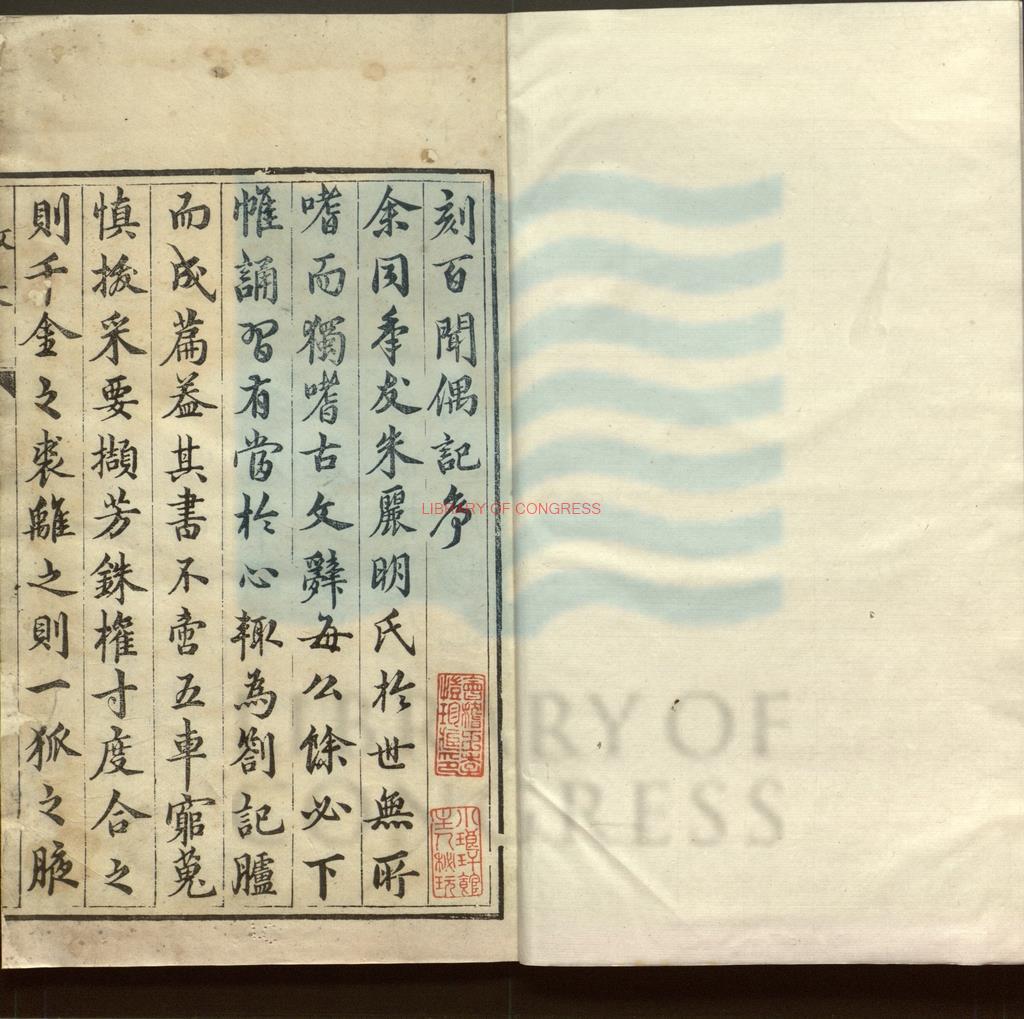 刻百聞偶記序
余同年友朱麗明氏於世無所
嗜而獨嗜古文辭每公餘必下
帷誦習有當於心輙為劄記臚
而成篇葢其書不啻五車窮蒐
慎掇采要擷芳銖權寸度合之
則千金之裘離之則一狐之腋
LIBRARY OF CONGRESS